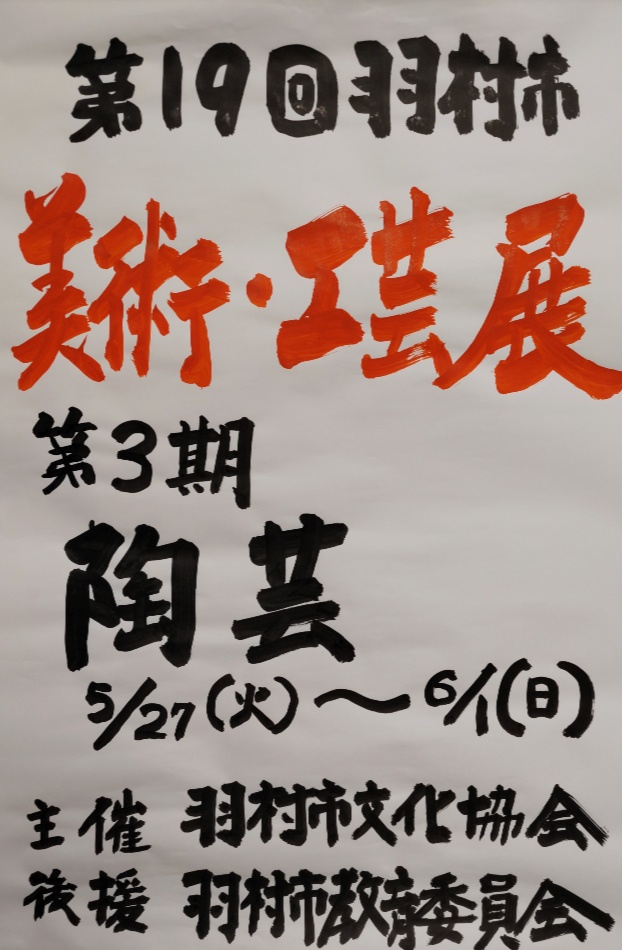 第19回羽村市
美術・工芸展
第3期
陶芸
5/27(火)～6/1(日)
主催 羽村市文化協会
後援 羽村市教育委員会